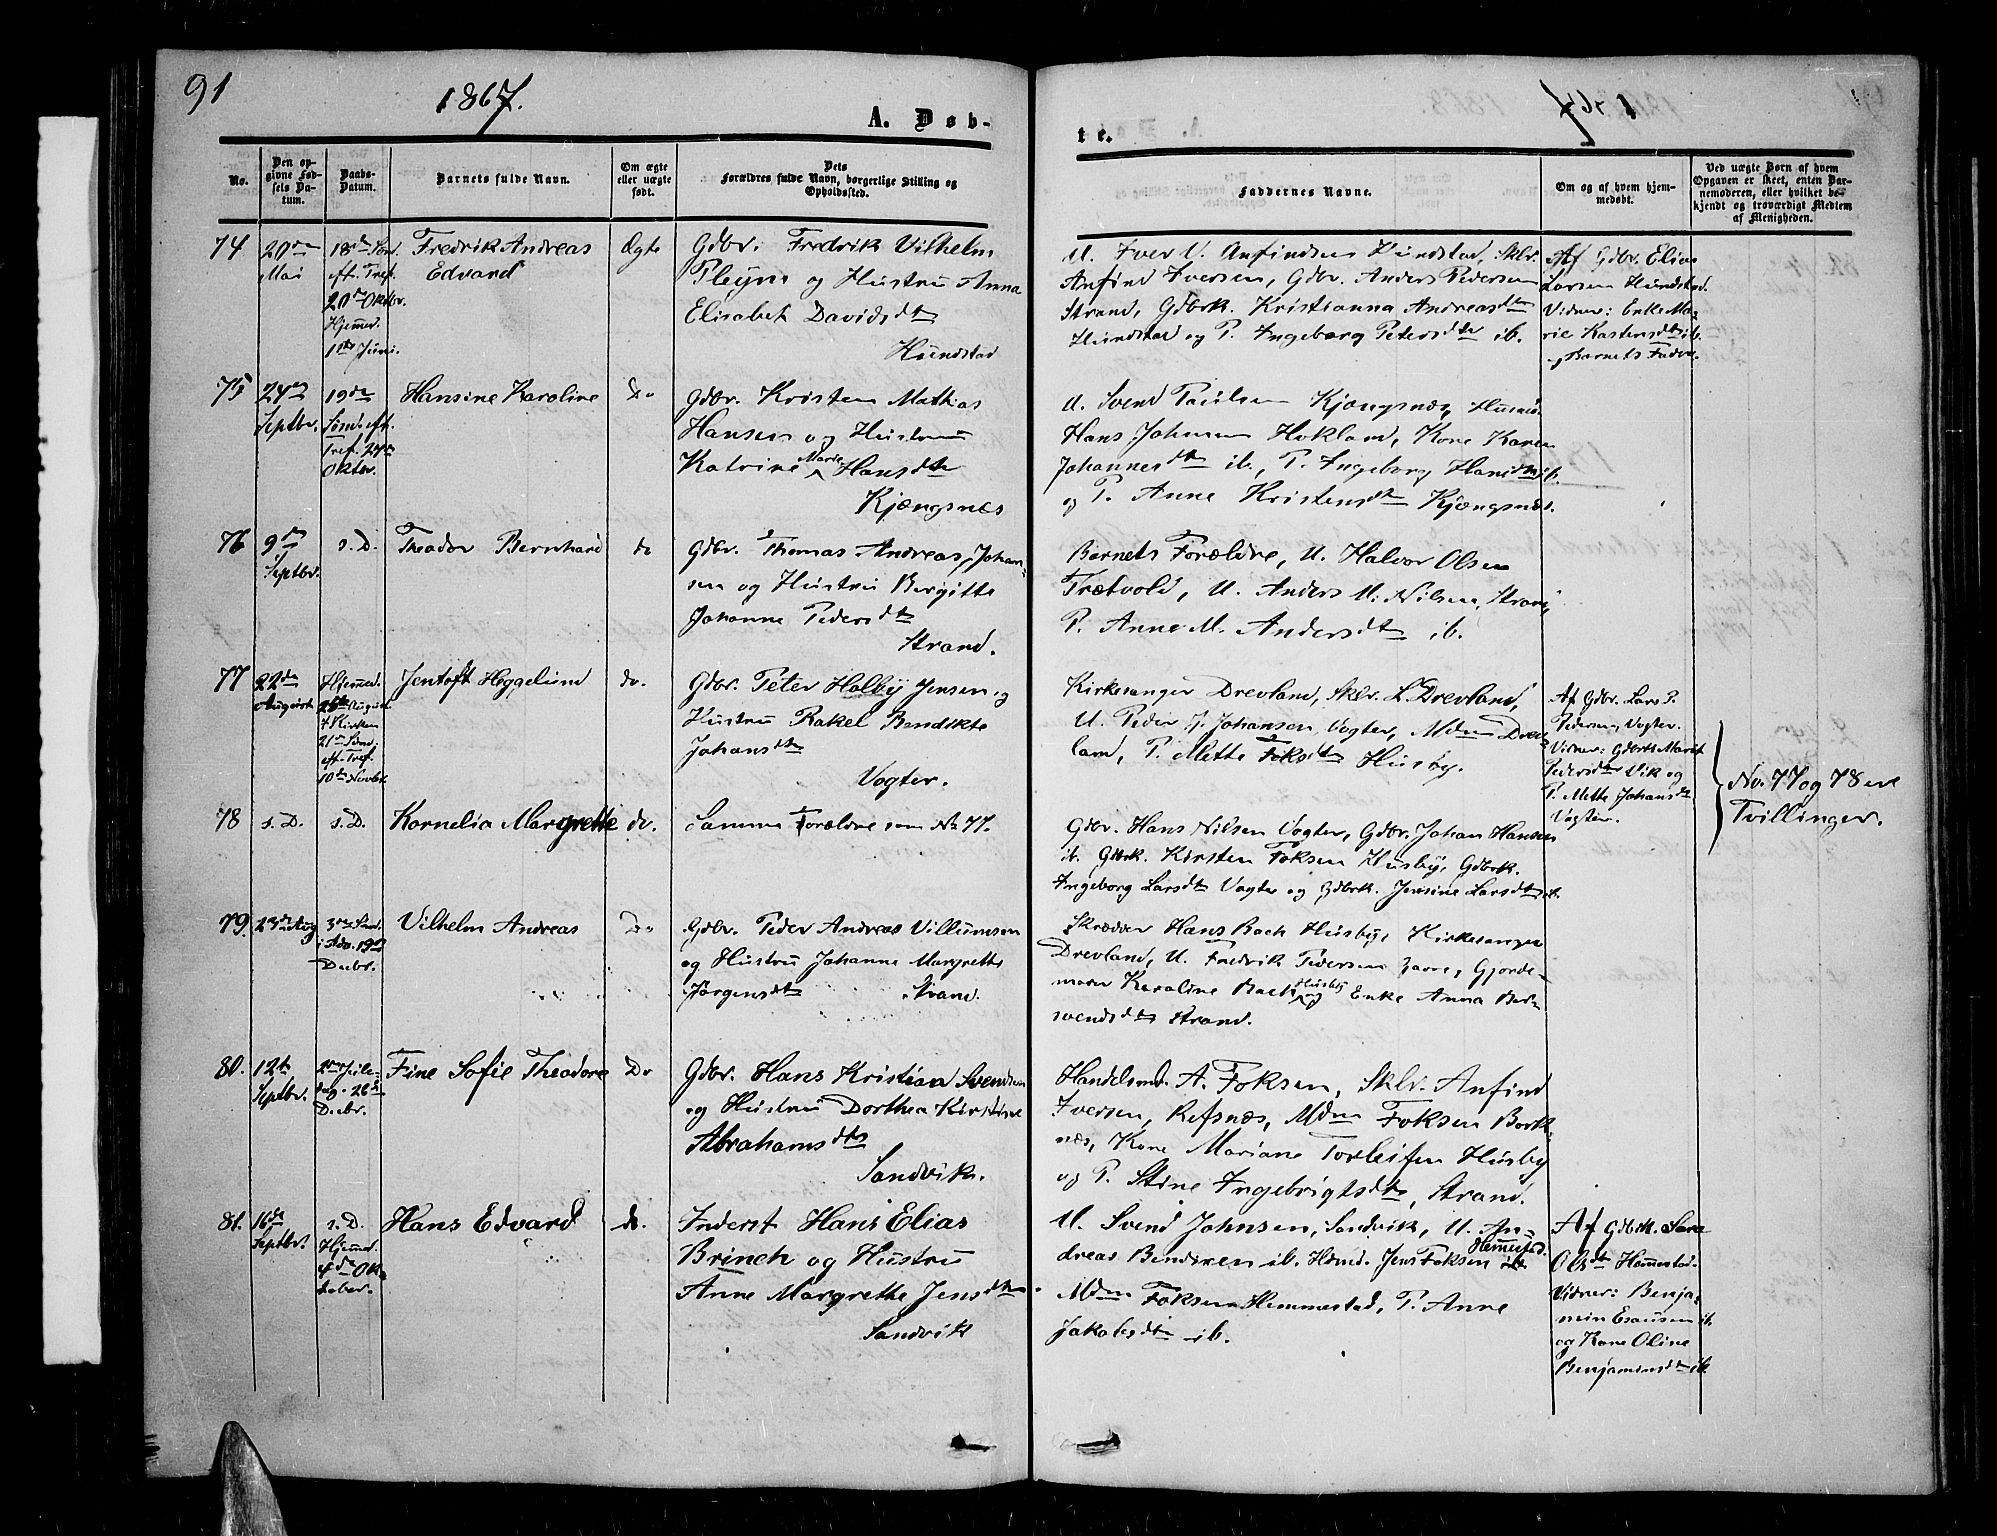 91
1867.
A. Døb-
te.
No.
Den op-
givne Fød-
sels Da-
tum.
Daabs-
Datum.
Barnets fulde Navn.
Om ægte
eller uægte
født.
Dets
Forældres fulde Navn, borgerlige Stilling og
Opholdssted.
Faddernes Navne.
Om og af hvem hjem-
medøbt.
Ved uægte Born af hvem
Opgaven er skeet, enten Bar-
nemoderen, eller hvilket be-
kjendt og troværdigt Medlem
af Menigheden.
74
20de
Mai
18de Sønd.
eft. Tref.
20de Oktbr.
Hjemmed.
1ste Juni.
Fredrik Andreas
Edvard
Ægte
Gdbr. Fredrik Vilhelm
Pleym og Hustru Anna
Elisabet Davidsdtr
Hundstad
U. Iver U. Anfindsen Hundstad, Sklr.
Anfind Iversen, Gdbr. Anders Pedersen
Strand, Gdbrk. Kristianna Andreasdtr
Hundstad og P. Ingeborg Petersdtr ib.
Af Gdbr. Elias
Larsen Hundstad.
Vidner: Enke Ma-
rie Kastensdtr ib.
og Barnets Fader.
75
24de
Septbr.
19de
Sønd. eft.
Tref. 27de
Oktbr.
Hansine Karoline
Do
Gdbr. Kristen Mathias
Hansen og Hustru
Katrine Marie Hansdtr
Kjøngsnæs
U. Svend Paulsen Kjøngsnæs, Husmd.
Hans Johnsen Hokland, Kone Karen
Johannesdtr ib., P. Ingeborg Hansdtr ib.
og P. Anne Kristensdtr Kjøngsnæs.
76
9de
Septbr.
s. D.
Theodor Bernhard
do
Gdbr. Thomas Andreas Johan-
sen og Hustru Bergitte
Johanne Pedersdtr
Strand.
Barnets Forældre, U. Halvor Olsen
Trætvold, U. Anders M. Nilsen, Strand,
P. Anne M. Andersdtr ib.
77
22de
August
Hjemmed.
25de August
i Kirken
21de Sønd.
eft. Tref.
10de Novbr.
Jentoft Heggelund
do.
Gdbr. Peter Holby Jensen og
Hustru Rakel Bendikte
Johansdtr
Vogter.
Kirkesanger Drevland, Sklr. L. Drevland,
U. Peder J. Johansen Vogter, Mdm Drev-
land, P. Mette Foksdtr Husby.
Af Gdbr. Lars P.
Pedersen, Vogter.
Vidner: Gdbrk Marit
Pedersdtr Vik og
P. Mette Johansdtr
Vogter.
No. 77 og 78 ere
Tvillinger.
78
s. D.
s. D.
Kornelia Margrethe
do.
Samme Forældre som No 77.
Gdbr. Hans Nilsen Vogter, Gdbr. Johan Hansen
ib. Gdbrk. Kirsten Foksen Husby, Gdbrk.
Ingeborg Larsdtr Vogter og Gdbrk. Jensine Larsdtr ib.
79.
23de Aug
3die Sønd.
i Adv. 15de
Decbr.
Vilhelm Andreas
Do
Gdbr. Peder Andreas Villumsen
og Hustru Johanne Margrethe
Jørgensdtr Strand.
Skrædder Hans Bach Husby, Kirkesanger
Drevland, U. Fredrik Pedersen Faare, Gjorde-
moder Karoline Bach Husby og Enke Anna Ber-
svendsdtr Strand.
80.
12te
Septbr.
2den Jule-
dag. 26de
Decbr.
Fine Sofie Theodore
Do
Gdbr. Hans Kristian Svendsen
og Hustru Dorthea Kirstine
Abrahamsdtr
Sandvik.
Handelsmd. A. Foksen, Sklr. Anfind
Iversen, Refsnæs, Mdm Foksen Bork-
næs, Kone Mariane Torleifsen Husby
og P. Stine Ingebrigtsdtr, Strand.
81.
16de
Septbr.
s. D.
Hjemmed.
4de Ok-
tober.
Hans Edvard
do.
Inderst Hans Elias
Brinch og Hustru
Anne Margrethe Jensdtr
Sandvik
U. Svend Johnsen, Sandvik, U. An-
dreas Bendixen ib. Hdmd. Jens Foksen Hemmestad.
Mdm Foksen Hemmestad, P. Anne
Jakobsdtr ib.
Af Gdbrk. Sara
Olsdtr Hemmestad.
Vidner: Benja-
min Esausen ib.
og Kone Oline
Benjaminsdtr ib.